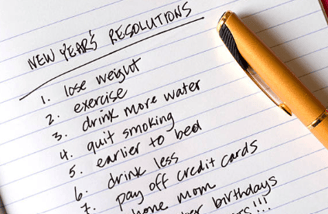 NEW YEAR'S RESOLUTIONS
1. lose weight
2. exercise
3. drink more water
4. quit smoking
5. earlier to bed
6. drink less
7. pay off credit cards
mom
birthdays